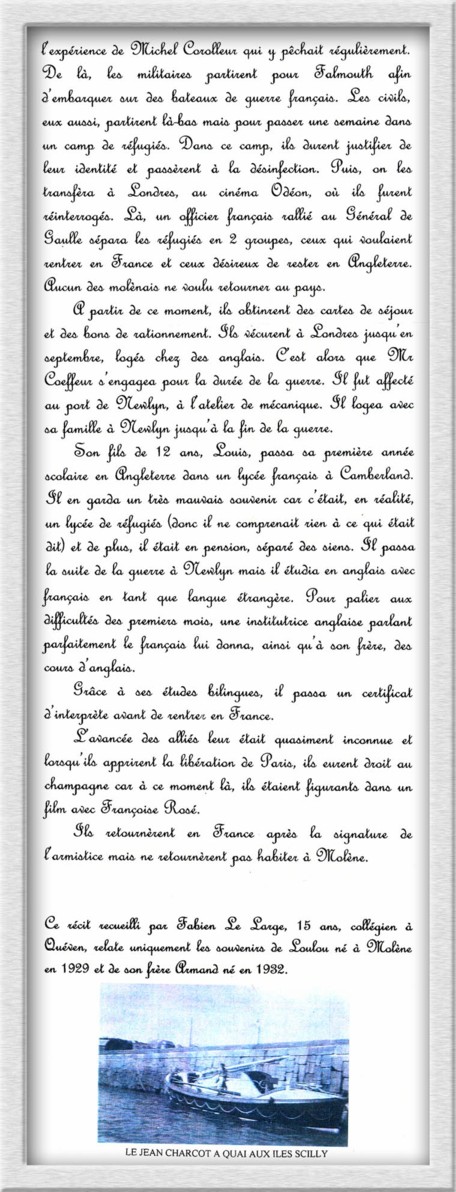 l'expérience de Michel Corolleur qui y pêchait régulièrement.
De là, les militaires partirent pour Falmouth afin
d'embarquer sur des bateaux de guerre français. Les civils,
eux aussi, partirent là-bas mais pour passer une semaine dans
un camp de réfugiés. Dans ce camp, ils durent justifier de
leur identité et passèrent à la désinfection. Puis, on les
transféra à Londres, au cinéma Odéon, où ils furent
réinterrogés. Là, un officier français rallié au Général de
Gaulle sépara les réfugiés en 2 groupes, ceux qui voulaient
rentrer en France et ceux désireux de rester en Angleterre.
Aucun des molènais ne voulu retourner au pays.
A partir de ce moment, ils obtinrent des cartes de séjour
et des bons de rationnement. Ils vécurent à Londres jusqu'en
septembre, logés chez des anglais. C'est alors que Mr
Coeffeur s'engagea pour la durée de la guerre. Il fut affecté
au port de Newlyn, à l'atelier de mécanique. Il logea avec
sa famille à Newlyn jusqu'à la fin de la guerre.
Son fils de 12 ans, Louis, passa sa première année
scolaire en Angleterre dans un lycée français à Camberland.
Il en garda un très mauvais souvenir car c'était, en réalité,
un lycée de réfugiés (donc il ne comprenait rien à ce qui était
dit) et de plus, il était en pension, séparé des siens. Il passa
la suite de la guerre à Newlyn mais il étudia en anglais avec
français en tant que langue étrangère. Pour palier aux
difficultés des premiers mois, une institutrice anglaise parlant
parfaitement le français lui donna, ainsi qu'à son frère, des
cours d'anglais.
Grâce à ses études bilingues, il passa un certificat
d'interprète avant de rentrer en France.
L'avancée des alliés leur était quasiment inconnue et
lorsqu'ils apprirent la libération de Paris, ils eurent droit au
champagne car à ce moment là, ils étaient figurants dans un
film avec Françoise Rosé.
Ils retournèrent en France après la signature de
l'armistice mais ne retournèrent pas habiter à Molène.
Ce récit recueilli par Fabien Le Large, 15 ans, collégien à
Quéven, relate uniquement les souvenirs de Loulou né à Molène
en 1929 et de son frère Armand né en 1932.
LE JEAN CHARCOT A QUAI AUX ILES SCILLY